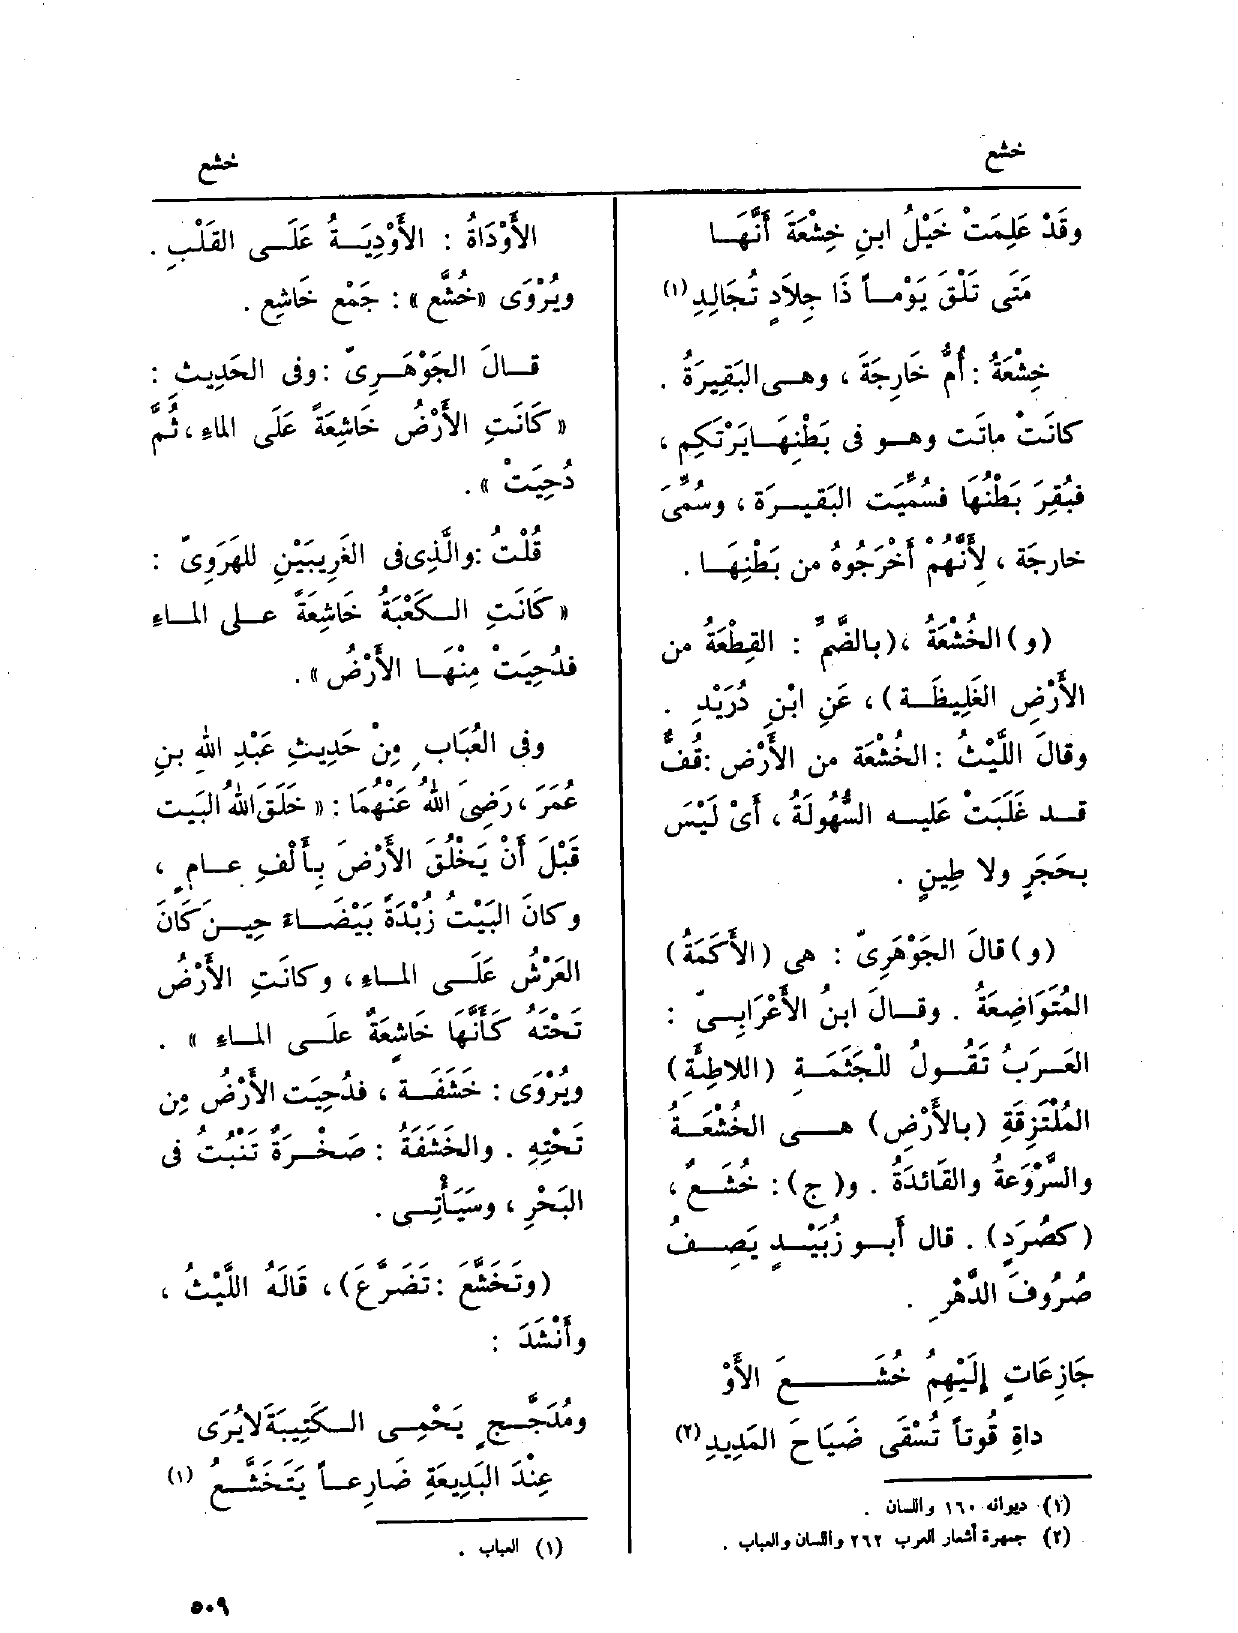 خشع
خشع
وقَدْ عَلِمَتْ خَيْلُ ابنِ خِشْعَةَ أَنَّهَا
مَتَى تَلْقَ يَوْماً ذَا جِلَادٍ تُجَالِدِ (١)
خِشْعَةُ : أُمُّ خارِجَةَ ، وهى البَقِيرَةُ .
كانَتْ ماتَت وهو فى بَطْنِهَا يَرْتَكِم ،
فبُقِرَ بَطْنُهَا فسُمِّيَت البَقيرَة ، وسُمِّىَ
خارجَة ، لِأَنَّهُمْ أَخْرَجُوهُ من بَطْنِهَا .
(و) الخُشْعَةُ ، (بالضَّمِّ : القِطْعَةُ من
الأَرْضِ الغَلِيظَة) ، عَنِ ابْنِ دُرَيْدِ .
وقالَ اللَّيْثُ : الخُشْعَة من الأَرْض : قُفٌّ
قد غَلَبَتْ عليه السُّهُولَةُ ، أَىْ لَيْسَ
بحَجَرٍ ولا طِينٍ .
(و) قالَ الجَوْهَرِىّ : هى (الأَكَمَةُ)
المُتَوَاضِعَةُ . وقالَ ابنُ الأَعْرَابِىّ :
العَرَبُ تَقُولُ للْجَثَمَةِ (اللاطِئَة)
المُلْتَزِقَةِ (بالأَرْضِ) هى الخُشْعَةُ
والسَّرْوَعَةُ والقَائدَةُ . و (ج) : خُشَعٌ ،
(كصُرَدٍ) . قال أَبو زُبَيْدٍ يَصِفُ
صُرُوفَ الدَّهْرِ .
جَازِعَاتٍ إِلَيْهِمُ خُشَعَ الأَوْ
داةِ قُوتاً تُسْقَى ضَيَاحَ المَدِيدِ (٢)
(١) ديوانه ١٦٠ واللسان .
(٢) جمهرة أشعار العرب ٢٦٢ واللسان والعباب .
الأَوْدَاةُ : الأَوْدِيَةُ عَلَى القَلْبِ .
ويُرْوَى «خُشَّع» : جَمْع خاشِع .
قالَ الجَوْهَرِىّ : وفى الحَدِيثِ :
« كَانَتِ الأَرْضُ خَاشِعَةً عَلَى الماءِ ، ثُمَّ
دُحِيَتْ » .
قُلْتُ : والَّذِى فى الغَرِيبَيْنِ للهَرَوِىّ :
« كَانَتِ الكَعْبَةُ خَاشِعَةً على الماءِ
فدُحِيَتْ مِنْهَا الأَرْضُ » .
وفى العُبَابِ مِنْ حَدِيثِ عَبْدِ اللهِ بنِ
عُمَرَ ، رَضِىَ اللهُ عَنْهُمَا : « خَلَقَ اللهُ البَيت
قَبْلَ أَنْ يَخْلُقَ الأَرْضَ بِأَلْفِ عامٍ ،
وكانَ البَيْتُ زُبْدَةً بَيْضَاءَ حِينَ كَانَ
العَرْشُ عَلَى الماءِ ، وكانَتِ الأَرْضُ
تَحْتَه كَأَنَّهَا خَاشِعَةٌ علَى الماءِ » .
ويُرْوَى : خَشَفَة ، فدُحِيَت الأَرْضُ مِن
تَحْتِهِ . والخَشَفَةُ : صَخْرَةٌ تَنْبُتُ فى
البَحْرِ ، وسَيَأْتِى .
(وتَخَشَّعَ : تَضَرَّعَ) ، قَالَهُ اللَّيْثُ ،
وأَنْشَدَ :
ومُدَجَّجٍ يَحْمِى الكَتِيبَةَ لايُرَى
عِنْدَ البَدِيعَةِ ضَارِعاً يَتَخَشَّعُ (١)
(١) العباب .
٥٠٩